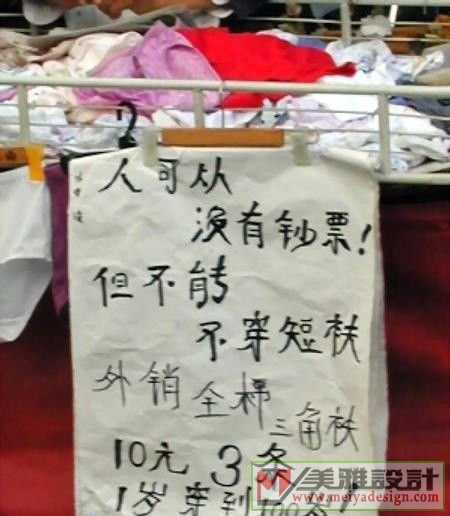 人可从
没有钞票!
但不能
不穿短衭
外销全棉
三角衭
10元 3条
1岁穿到100岁!
美雅設計
www.meiyadesign.com